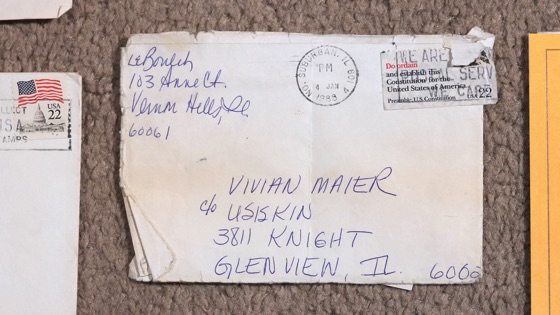 103 Anne Ct.
Vernon Hills, IL
60061
SUBURBAN, IL
PM
4 JAN
1988
WE ARE
SERV
WE CA
Do ordain
and establish this
Constitution for the
United States of America
Preamble, U.S. Constitution
USA 22
USA
22
VIVIAN MAIER
c/o USISKIN
3811 KNIGHT
GLENVIEW, IL. 6002